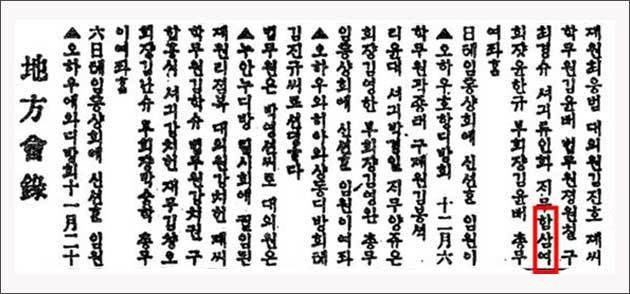 地方會錄
▲오하우에와디방회十一月二十
六日에임통샹회에 신션ᄒᆞᆫ 임원
이여좌흠
회쟝김난슈 부회쟝박승학 총무
함홍식 셔긔강치헌 재무김창오
학무원김학슈 법무원강치권 구
재원리졉복 대의원강치헌 졔씨
▲누안누디방 림시회에 궐임된
법무원은 박영션씨로 대의원은
김진규씨로션뎡ᄒᆞ다
▲오하우와히아와샹동디방회에
임통샹회에 신션ᄒᆞᆫ 임원이여좌흠
회쟝김영한 부회쟝김영완 총무
리윤대 셔긔박경일 지무양쥬은
학무원곽종태 구졔원김봉셔
▲오하우호항디방회 十二月六
日에임통샹회에 신션ᄒᆞᆫ 임원이
여좌흠
회쟝윤한규 부회쟝김윤배 총무
최경슈 셔긔류인화 지무함삼여
학무원김윤배 법무원졍원칠 구
재원최응범 대의원김진호 졔씨